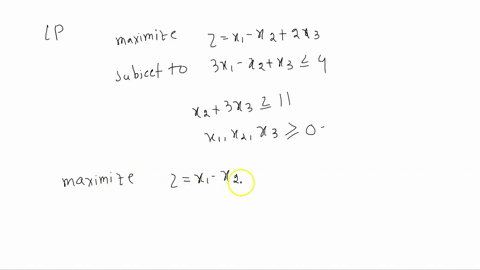 LP maximize Z = x1 - x2 + 2x3
subject to 3x1 - x2 + x3 ≤ 4
x2 + 3x3 ≥ 11
x1, x2, x3 ≥ 0
maximize Z = x1 - x2